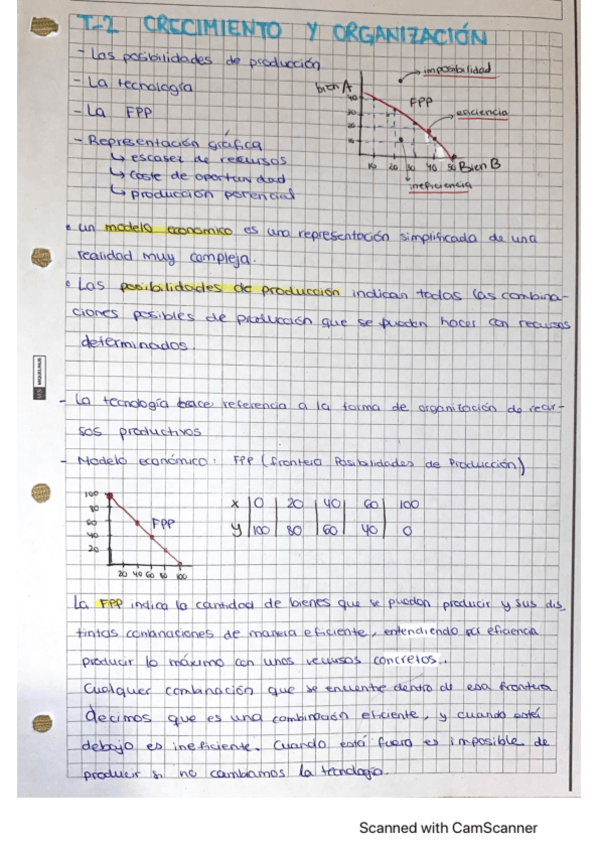 T-2 CRECIMIENTO Y ORGANIZACIÓN
- Las posibilidades de producción
- La tecnología
- La FPP
- Representación gráfica
↳ escasez de recursos
↳ coste de oportunidad
↳ producción potencial
bien A
imposibilidad
FPP
eficiencia
10 20 30 40 50 Bien B
ineficiencia
• un modelo económico es una representación simplificada de una
realidad muy compleja.
• Las posibilidades de producción indican todas las combina-
ciones posibles de producción que se pueden hacer con recursos
determinados.
- La tecnología hace referencia a la forma de organización de recur-
sos productivos
- Modelo económico: FPP (Frontera Posibilidades de Producción)
100
80
60
40
20
FPP
20 40 60 80 100
x | 0 | 20 | 40 | 60 | 100
y | 100 | 80 | 60 | 40 | 0
La FPP indica la cantidad de bienes que se puedan producir y sus dis
tintas combinaciones de manera eficiente, entendiendo por eficiencia
producir lo máximo con unos recursos concretos..
Cualquier combinación que se encuentre dentro de esa frontera
decimos que es una combinación eficiente, y cuando está
debajo es ineficiente. Cuando está fuera es imposible de
producir si no cambiamos la tecnología.
Scanned with CamScanner